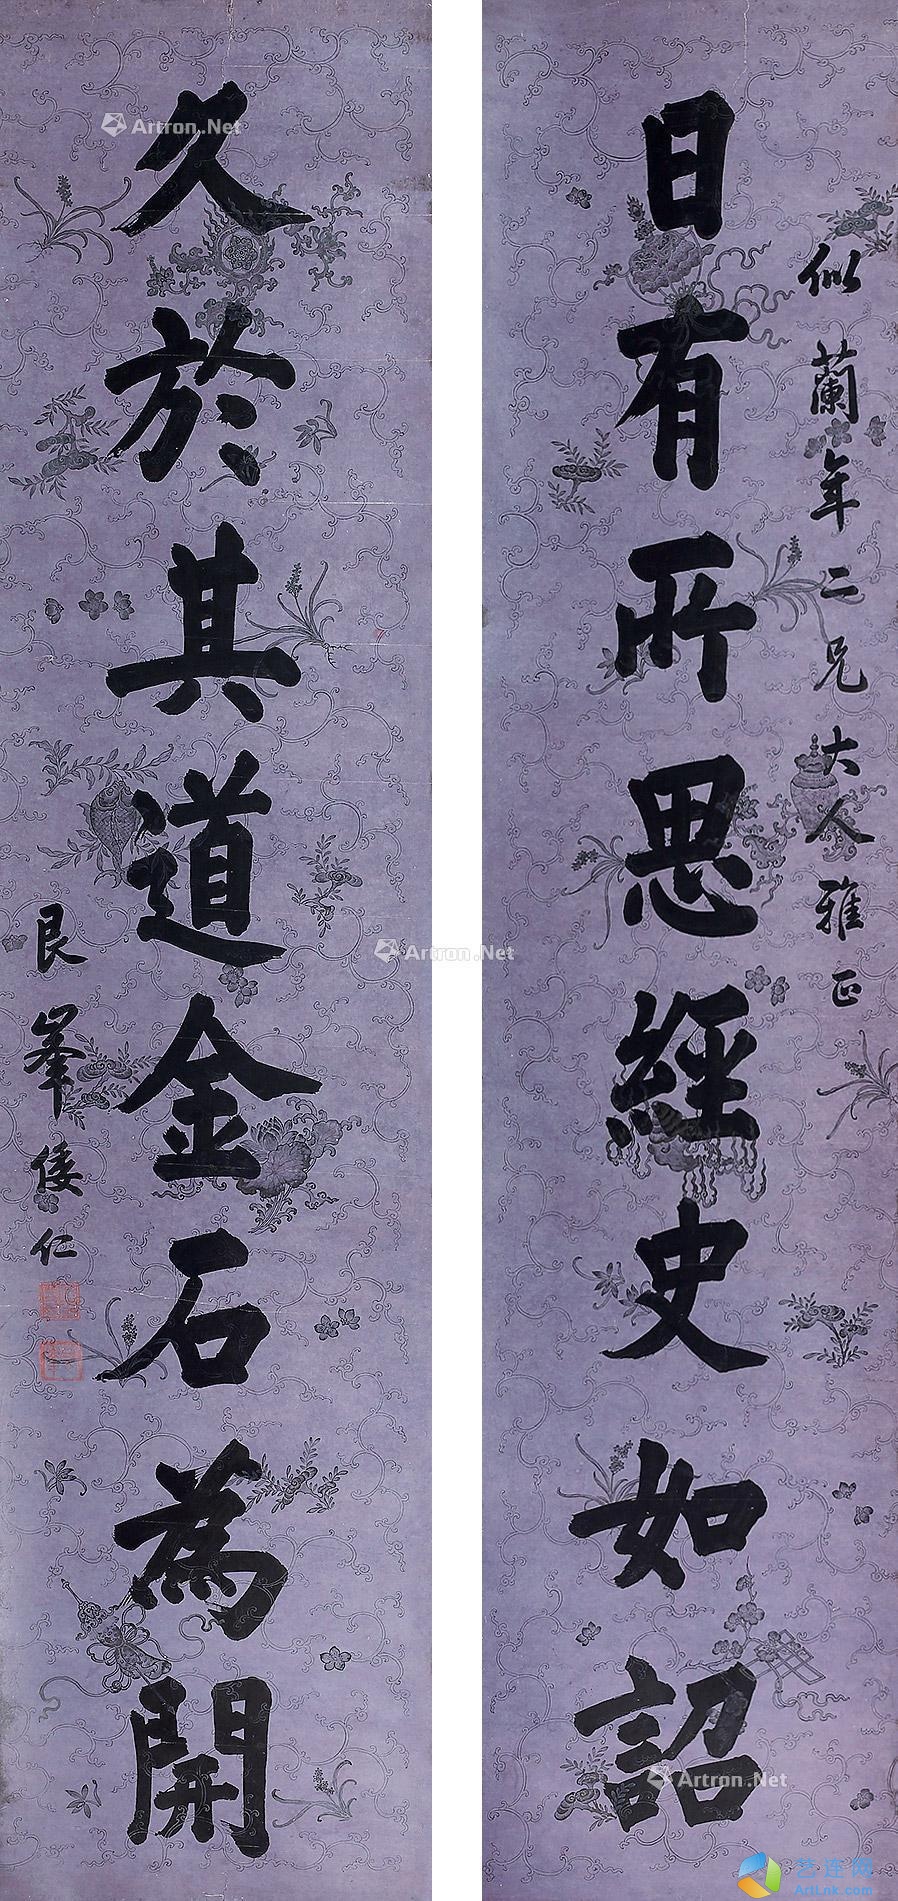 似蘭年二兄大人雅正
日有所思經史如詔
久於其道金石為開
艮峯倭仁
Artron.Net
Artron.Net
Artron.Net
艺连网
ActLnk.com